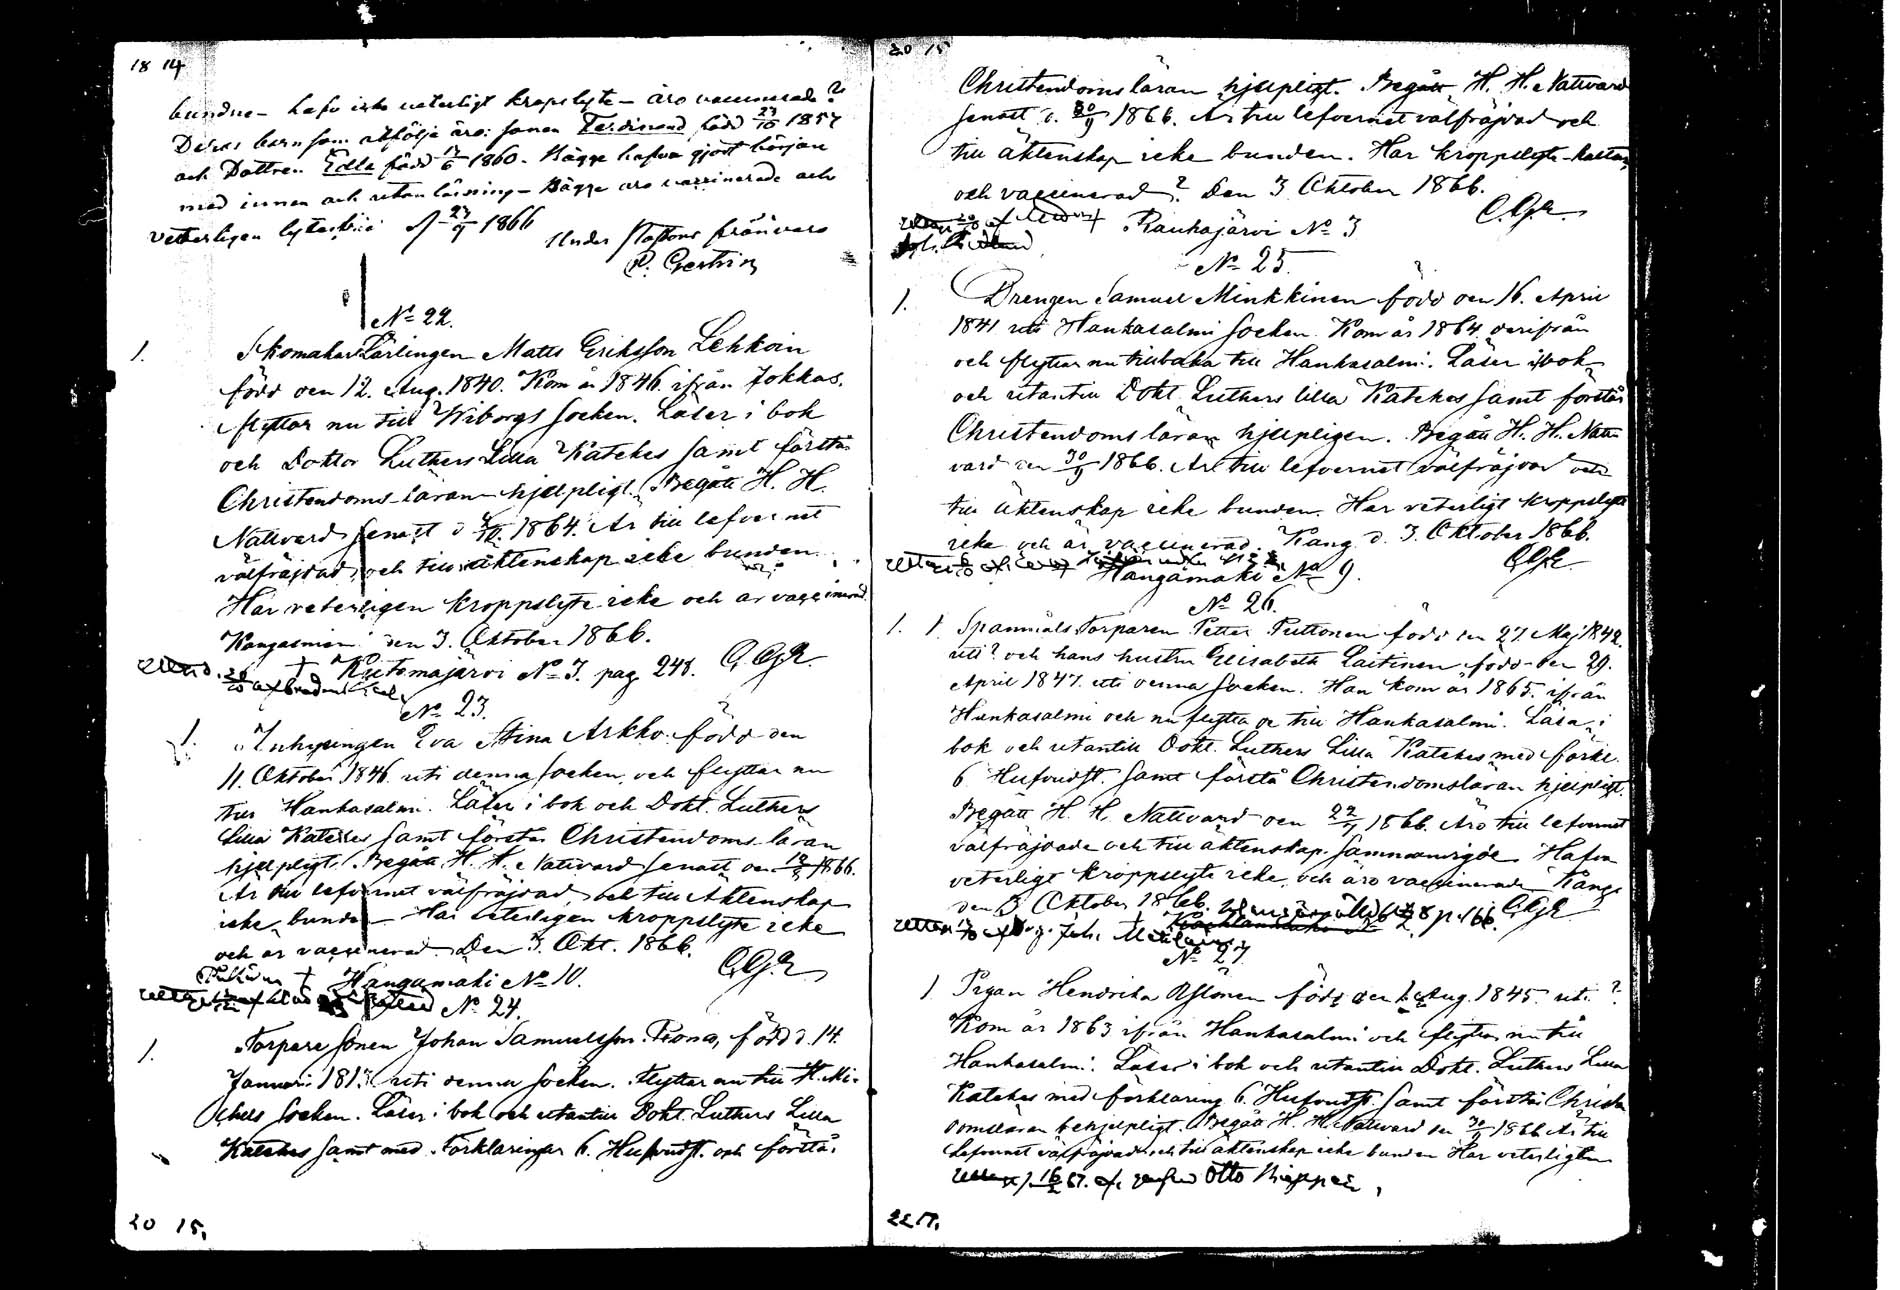 18 14
bundne - hafva icke veterligt kropslyte - äro vaccinerade?
Deras barn som åtfölja äro: sonen Ferdinand född 23/10 1857
och Dottren Edla född 17/6 1860. Bägge hafva gjort början
med innan och utan läsning - Bägge äro vaccinerade och
veterligen lytesfria d 23/9 1866
Under Pastors frånvaro
P. Gestrin
No 22.
1. Skomakare Lärlingen Matts Eriksson Lehkoin
född den 12. Aug. 1840. Kom år 1846 ifrån Jokkas,
flyttar nu till Wiborgs Socken. Läser i bok
och Doktor Luthers Lilla Katekes samt förstår
Christendoms-läran hjelpligt. Begått H. H.
Nattvard senast d 1864. Är till lefvernet
välfräjdad, och till äktenskap icke bunden.
Har veterligen kroppslyte icke och är vaccinerad
Kangasniemi den 3. Oktober 1866.
Kutemajärvi No 3. pag 248. C.G.E.
No 23.
1. Inhysingen Eva Stina Arkko född den
11. Oktober 1846 uti denna socken, och flyttar nu
till Hankasalmi. Läser i bok och Dokt. Luthers
Lilla Katekes samt förstår Christendoms-läran
hjelpligt. Begått H. H. Nattvard senast den 1866.
Är till lefvernet välfräjdad, och till Äktenskap
icke bunden Har veterligen kroppslyte icke
och är vaccinerad. Den 3. Okt. 1866.
Hangamäki No 10. C.G.E
No 24.
1. Torpare sonen Johan Samuelsson född d. 14.
Januari uti denna socken. Flyttar nu till St. Mi-
chels Socken. Läser i bok och utantill Dokt. Luthers Lilla
Katekes samt med Förklaringar 6. Hufvudst. och förstår
20 15.
20 15
Christendomsläran hjelpligt. Begått H. H. Nattvard
senast d. 30/9 1866. Är till lefvernet välfräjdad och
till äktenskap icke bunden. Har kroppslyte
och vaccinerad? Den 3 Oktober 1866.
Rauhajärvi No 3 C.G.E.
No 25.
1. Drengen Samuel Minkkinen född den 16. April
1841 uti Hankasalmi Socken. Kom år 1864 derifrån
och flyttar nu tillbaka till Hankasalmi. Läser i bok
och utantill Dokt. Luthers lilla Katekes samt förstår
Christendomsläran hjelpligen. Begått H. H. Natt-
vard den 30/9 1866. Är till lefvernet välfräjdad och
till äktenskap icke bunden. Har veterligt kroppslyte
icke och är vaccinerad. Kang. d. 3. Oktober 1866.
Hangamäki No 9. C.G.E.
No 26.
1. 1. Spannmåls Torparen Petter Puttonen född den 27 Maj 1842.
uti? och hans hustru Elisabeth Laitinen född den 29.
April 1847. uti denna Socken. Han kom år 1865. ifrån
Hankasalmi och nu flytta de till Hankasalmi. Läsa i
bok och utantill Dokt. Luthers Lilla Katekes med förkl.
6 Hufvudst. samt förstå Christendomsläran hjelpligt.
Begått H. H. Nattvard den 1866. Äro till lefvernet
välfräjdade och till äktenskap sammanvigde. Hafva
veterligt kroppslyte icke, och äro vaccinerade Kangs
den 3 Oktober 1866. C.G.E
No 27.
1 Pigan Hendrika född den Aug. 1845 uti ?
Kom år 1863 ifrån Hankasalmi och flyttar nu till
Hankasalmi. Läser i bok och utantill Dokt. Luthers Lilla
Katekes med förklaring 6. Hufvudst. samt förstår Christen-
domsläran behjelpligt. Begått H. H. Nattvard den 30/9 1866 Är till
lefvernet välfräjdad och till äktenskap icke bunden Har veterligen
Otto
22 17.